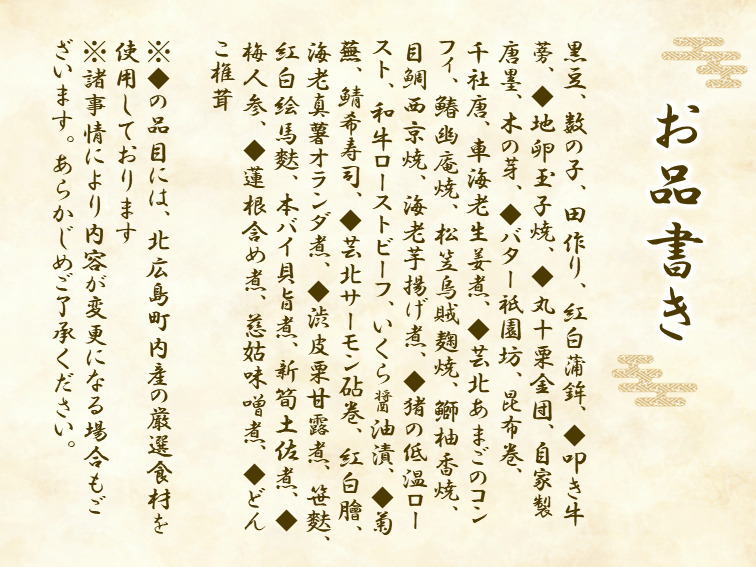 お品書き
黒豆、数の子、田作り、紅白蒲鉾、◆叩き牛
蒡、◆地卵玉子焼、◆丸十栗金団、自家製
唐墨、木の芽、◆バター祇園坊、昆布巻、
千社唐、車海老生姜煮、◆芸北あまごのコン
フィ、鰆幽庵焼、松笠烏賊麹焼、鰤柚香焼、
目鯛西京焼、海老芋揚げ煮、◆猪の低温ロー
スト、和牛ローストビーフ、いくら醤油漬、◆菊
蕪、鯖希寿司、◆芸北サーモン砧巻、紅白膾、
海老真薯オランダ煮、◆渋皮栗甘露煮、笹麩、
紅白絵馬麩、本バイ貝旨煮、新筍土佐煮、◆
梅人参、◆蓮根含め煮、慈姑味噌煮、◆どん
こ椎茸
※◆の品目には、北広島町内産の厳選食材を
使用しております
※諸事情により内容が変更になる場合もご
ざいます。あらかじめご了承ください。